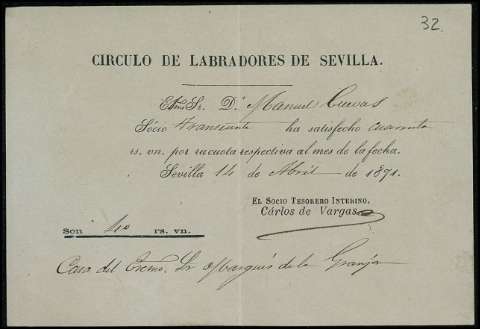 32.
CIRCULO DE LABRADORES DE SEVILLA.
Exmo. Sr. D.n Manuel Cuevas
Sócio transeunte ha satisfecho cuarenta
rs. vn. por su cuota respectiva al mes de la fecha.
Sevilla 14 de Abril de 1871.
EL SOCIO TESORERO INTERINO,
Cárlos de Vargas
Son 40 rs. vn.
Casa del Excmo. Sr Marqués de la Granja